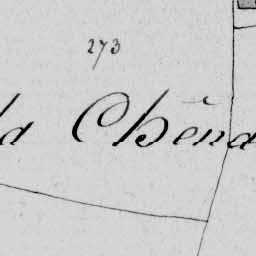 273
la Chêna